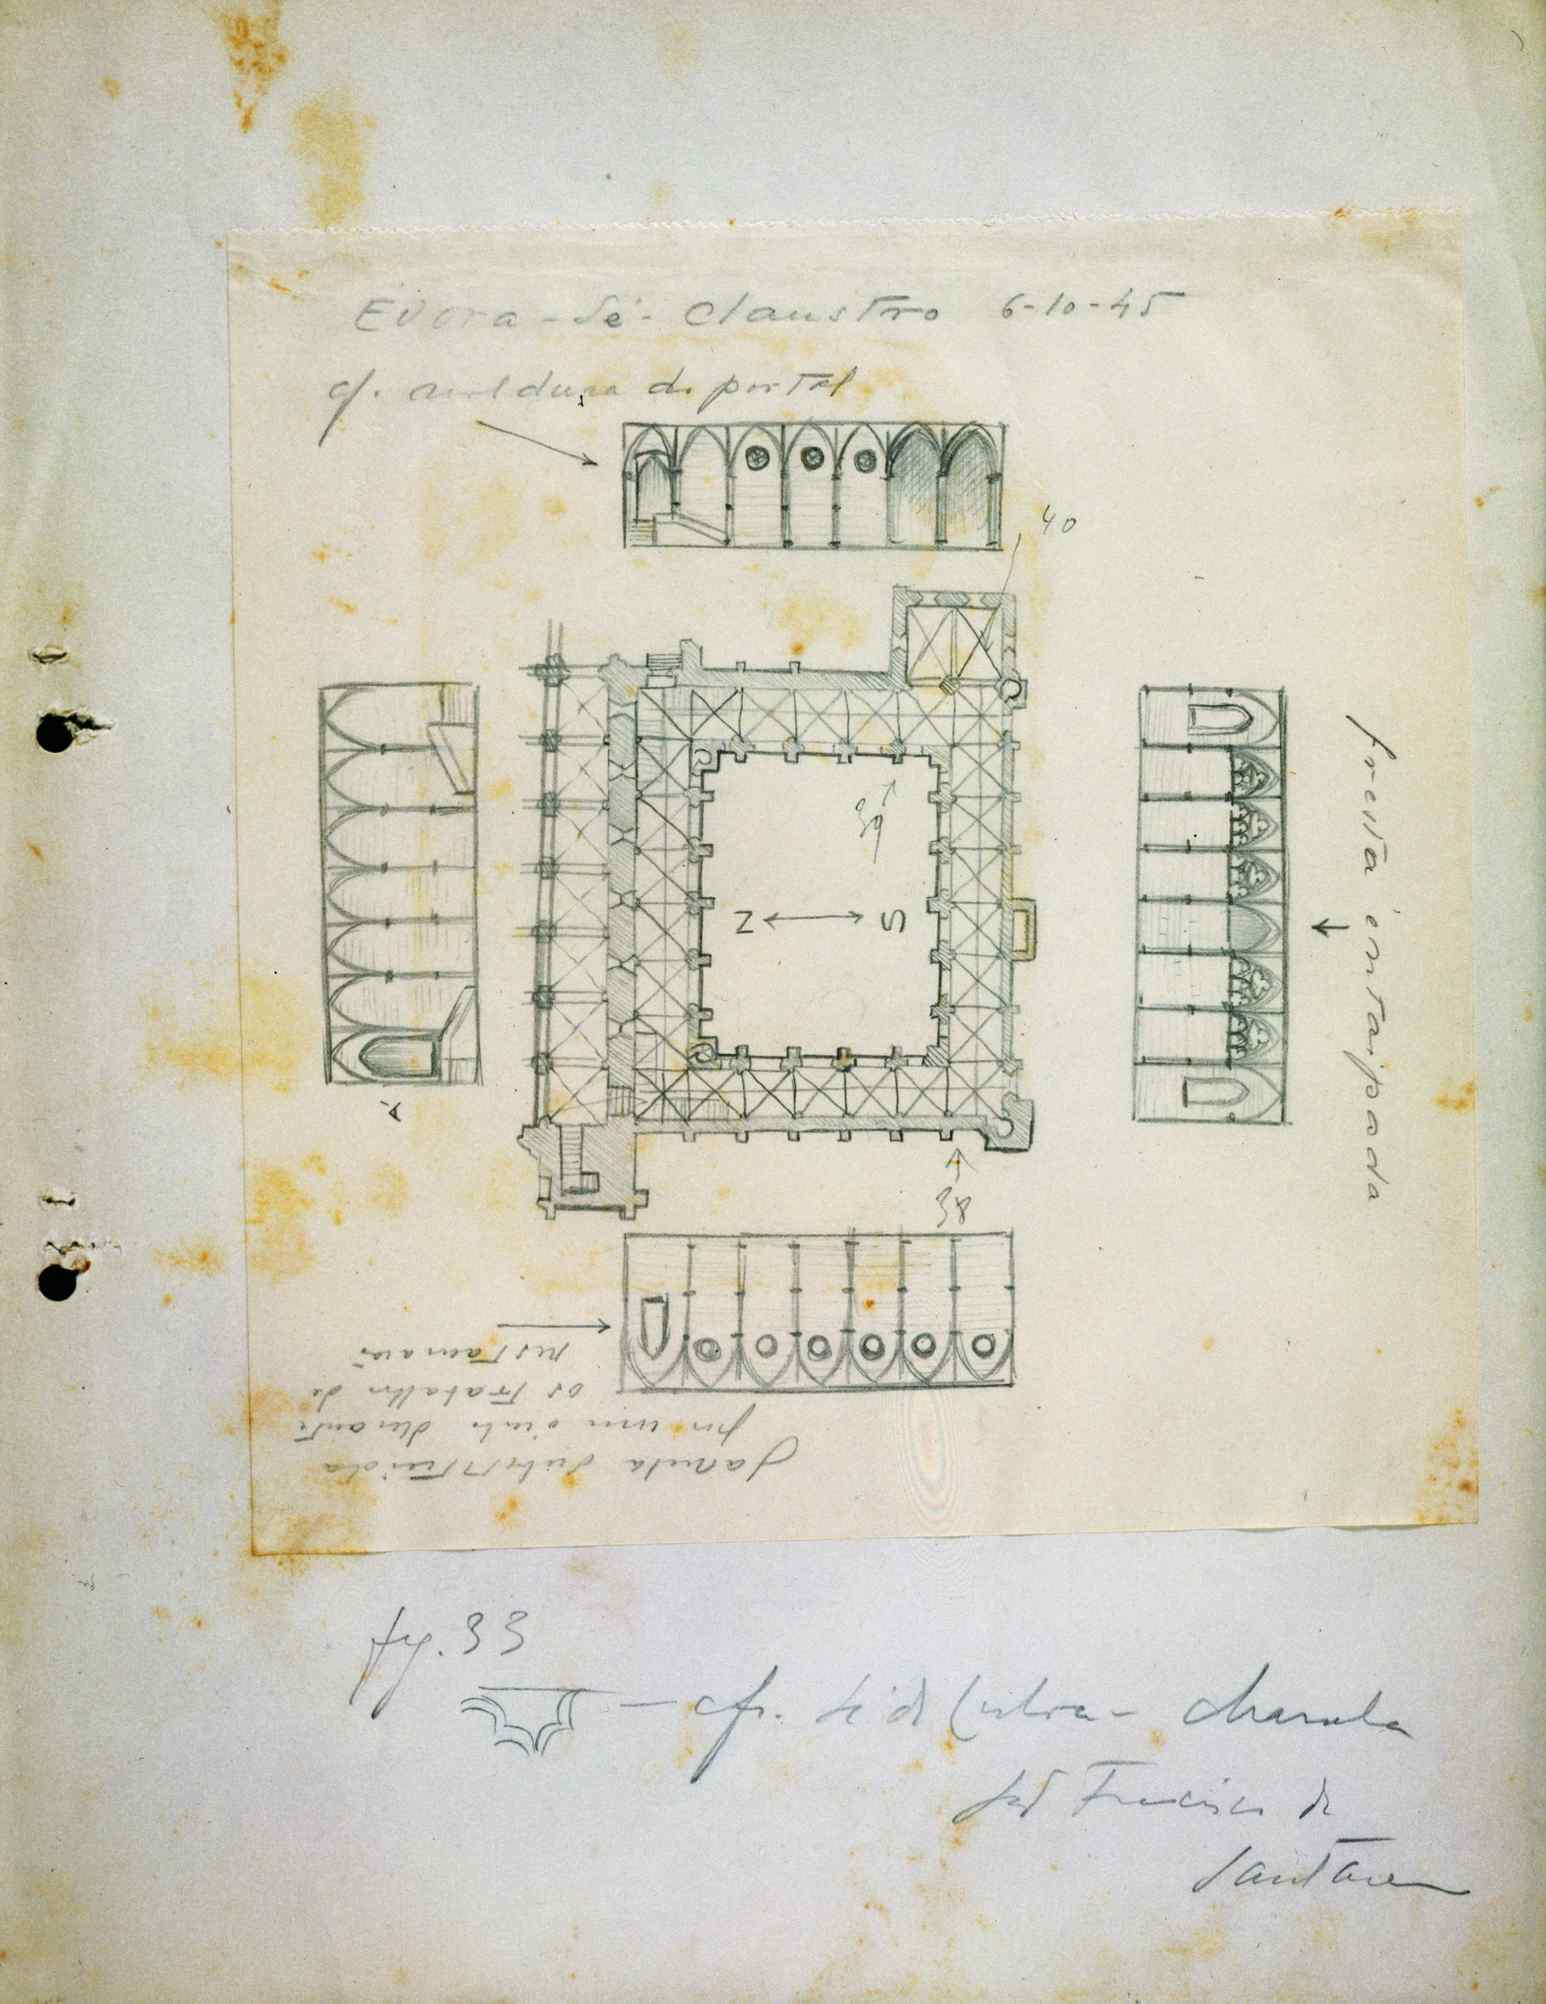 Evora - Sé - Claustro 6-10-45
cf. moldura do portal
40
39
N S
fresta entaipada
A
38
Janela substituida
por um óculo durante
os trabalhos de
restauração
fig. 33
— cfr. Sé de Lisboa - charola
São Francisco de
Santarem